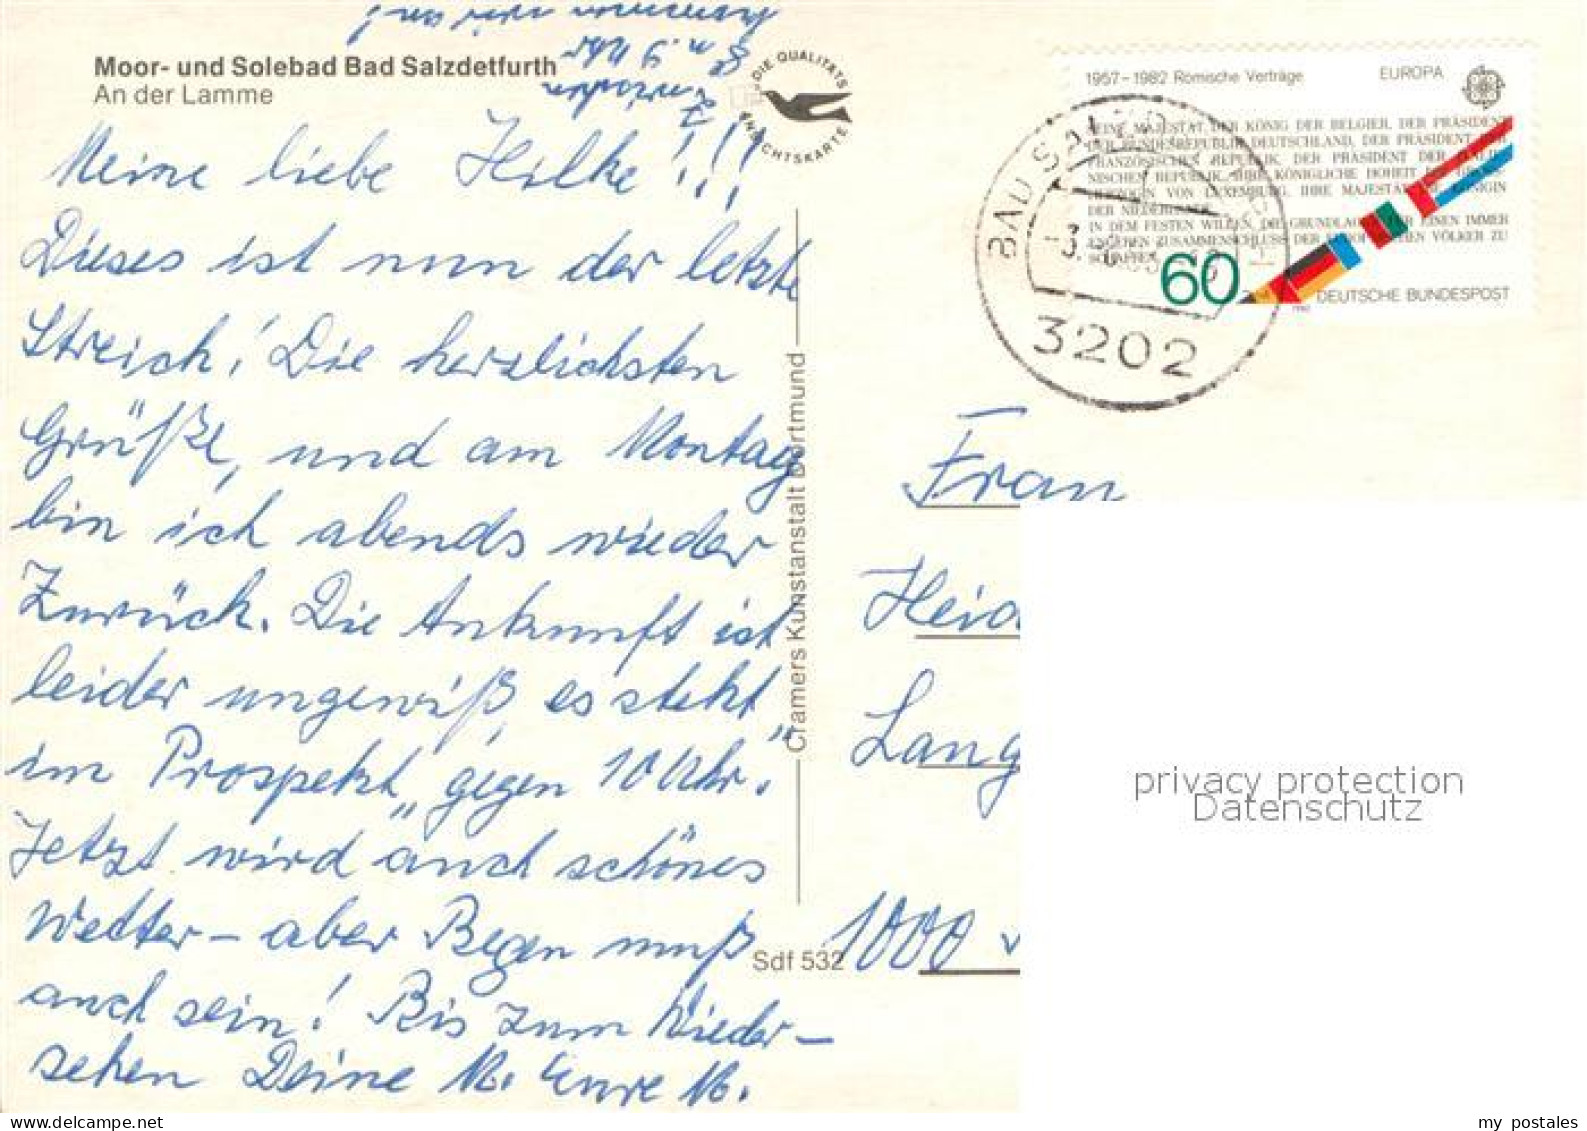 Moor- und Solebad Bad Salzdetfurth
An der Lamme
DIE QUALITÄTS
ANSICHTSKARTE
Meine liebe Hilke!!!
Dieses ist nun der letzte
Streich! Die herzlichsten
Grüße, und am Montag
bin ich abends wieder
zurück. Die Ankunft ist
leider ungewiß, es steht
im Prospekt „gegen 10 Uhr."
Jetzt wird auch schönes
Wetter – aber Regen muß
auch sein! Bis zum Wieder-
sehen Deine M. Eure M.
Zwischen
8 u. 9 Uhr
kommen wir an!
Cramers Kunstanstalt Dortmund
Sdf 532
1957–1982 Römische Verträge
EUROPA
SEINE MAJESTÄT DER KÖNIG DER BELGIER, DER PRÄSIDENT
DER BUNDESREPUBLIK DEUTSCHLAND, DER PRÄSIDENT DER
FRANZÖSISCHEN REPUBLIK, DER PRÄSIDENT DER ITALIE-
NISCHEN REPUBLIK, IHRE KÖNIGLICHE HOHEIT DIE GROSS-
HERZOGIN VON LUXEMBURG, IHRE MAJESTÄT DIE KÖNIGIN
DER NIEDERLANDE,
IN DEM FESTEN WILLEN, DIE GRUNDLAGEN FÜR EINEN IMMER
ENGEREN ZUSAMMENSCHLUSS DER EUROPÄISCHEN VÖLKER ZU
SCHAFFEN
60
DEUTSCHE BUNDESPOST
BAD SALZD
3202
Frau
Heid
Lang
1000
privacy protection
Datenschutz
my postales